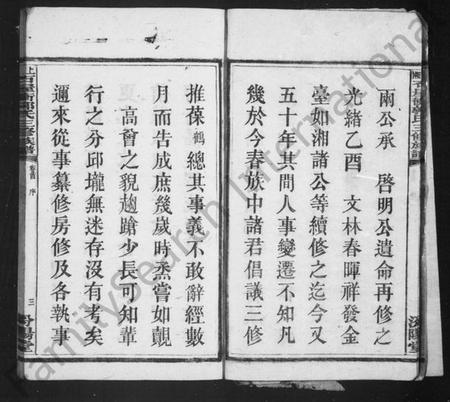 兩公承　啓明公遺命再修之
光緒乙酉　文林春暉祥發金
臺如湘諸公等續修之迄今又
五十年其間人事變遷不知凡
幾於今春族中諸君倡議三修
推葆鶴總其事義不敢辭經數
月而告成庶幾歲時烝嘗如覿
高曾之貌趨蹌少長可知輩
行之分邱壠無迷存沒有考矣
邇來從事纂修房修及各執事
卷首 序
三
汾陽堂
FamilySearch International